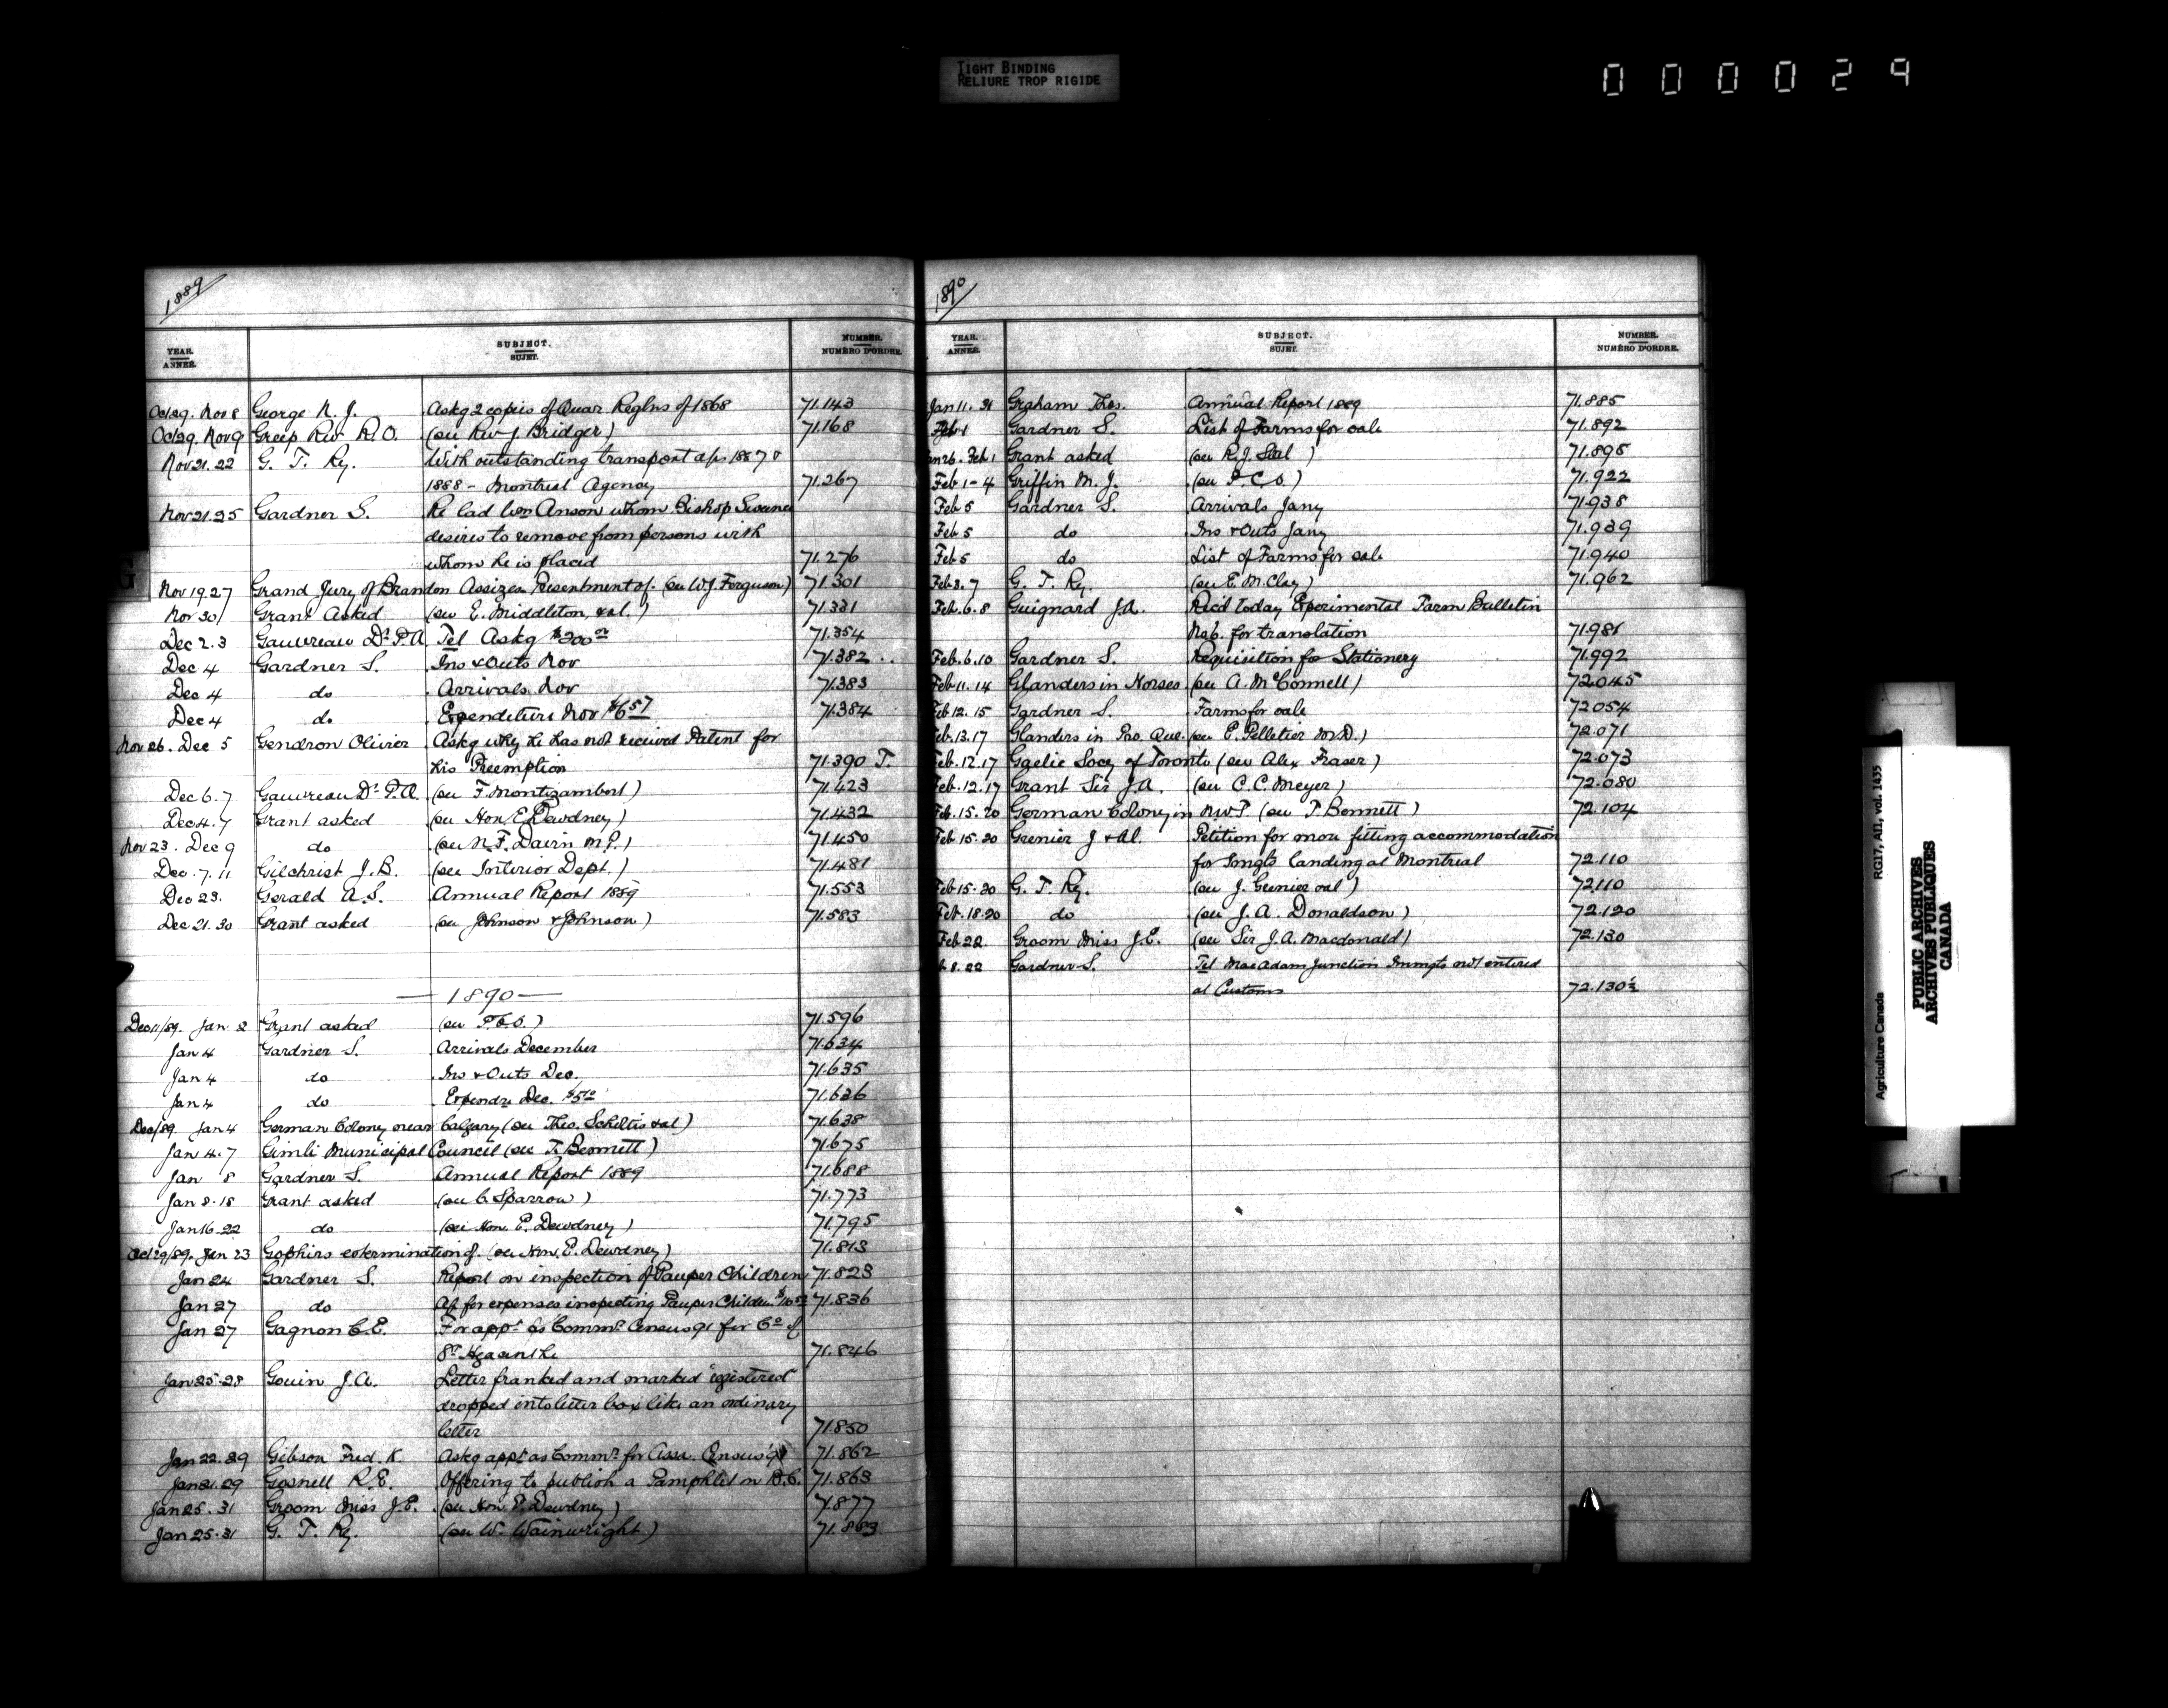 TIGHT BINDING
RELIURE TROP RIGIDE
000029
1889
YEAR. ANNÉE. SUBJECT. SUJET. NUMBER. NUMÉRO D'ORDRE.
Oct 29. Nov 8 George N. J. Askg 2 copies of Quar Reglns of 1868 71.143
Oct 29. Nov 9 Greep Rev R.O. (see Rev J. Bridger) 71.168
Nov 21.22 G. T. Ry. With outstanding transport a/cs 1887 &
1888 - Montreal Agency 71.267
Nov 21.25 Gardner S. Re lad Wm Anson whom Bishop
desires to remove from persons with
whom he is placed 71.276
Nov 19.27 Grand Jury of Brandon Assizes Presentment of. (see W.J. Ferguson) 71.301
Nov 30 Grant Asked (see E. Middleton, & al.) 71.331
Dec 2.3 Gauvreau Dr P.A. Tel Askg $200 00 71.354
Dec 4 Gardner S. Ins & Outs Nov 71.382 ..
Dec 4 do Arrivals Nov 71.383
Dec 4 do Expenditure Nov $6 57 71.384
Nov 26. Dec 5 Gendron Olivier Askg why he has not received Patent for
his Preemption 71.390 T.
Dec 6.7 Gauvreau Dr P.A. (see F. Montizambert) 71.423
Dec 4.7 Grant asked (see Hon. E. Dewdney) 71.432
Nov 23. Dec 9 do (see N. F. Davin M.P.) 71.450
Dec. 7.11 Gilchrist J.B. (see Interior Dept.) 71.481
Dec 23. Gerald A.S. Annual Report 1889 71.553
Dec 21.30 Grant asked (see Johnson & Johnson) 71.583
— 1890 —
Dec 11/89. Jan. 2 Grant asked (see P.C.O.) 71.596
Jan 4 Gardner S. Arrivals December 71.634
Jan 4 do Ins & Outs Dec. 71.635
Jan 4 do Expendre Dec. $5 10 71.636
Dec/89. Jan 4 German Colony near Calgary (see Theo. & al) 71.638
Jan 4.7 Gimli Municipal Council (see T. Bennett) 71.675
Jan 8 Gardner S. Annual Report 1889 71.688
Jan 8.18 Grant asked (see C. Sparrow) 71.773
Jan 16.22 do (see Hon. E. Dewdney) 71.795
Oct 29/89. Jan 23 Gophirs extermination of. (see Hon. E. Dewdney) 71.813
Jan 24 Gardner S. Report on inspection of Pauper Children 71.823
Jan 27 do A/c for expenses inspecting Pauper Children 71.836
Jan 27 Gagnon C.E. For appt as Commr Census 91 for Co of
St Hyacinthe 71.846
Jan 25.28 Gouin J.A. Letter franked and marked "registered"
dropped into letter box like an ordinary
letter 71.850
Jan 22.29 Gibson Fred. K. Askg appt as Commr for Assa. Census '91 71.862
Jan 21.29 Gosnell R.E. Offering to publish a Pamphlet on B.C. 71.863
Jan 25.31 Groom Miss J.E. (see Hon E. Dewdney) 71.877
Jan 25.31 G. T. Ry. (see W. Wainwright) 71.883
1890
YEAR. ANNÉE. SUBJECT. SUJET. NUMBER. NUMÉRO D'ORDRE.
Jan 11.31 Graham Thos. Annual Report 1889 71.885
Feb 1 Gardner S. List of Farms for sale 71.892
Jan 26. Feb 1 Grant asked (see R.J. ) 71.895
Feb 1-4 Griffin M. J. (see P.C.O.) 71.922
Feb 5 Gardner S. Arrivals Jany 71.938
Feb 5 do Ins & Outs Jany 71.939
Feb 5 do List of Farms for sale 71.940
Feb 3.7 G. T. Ry. (see E. M. Clay) 71.962
Feb. 6.8 Guignard J.A. Rec'd today Experimental Farm Bulletin
No 6. for translation 71.981
Feb. 6.10 Gardner S. Requisition for Stationery 71.992
Feb 11.14 Glanders in Horses (see A. McConnell) 72045
Feb 12.15 Gardner S. Farms for sale 72054
Feb. 13.17 Glanders in Pro. Que. (see E. Pelletier M.D.) 72.071
Feb. 12.17 Gaelic Socy of Toronto (see Alex Fraser) 72.073
Feb. 12.17 Grant Sir J.A. (see C.C. Meyer) 72.080
Feb. 15.20 German Colony in N.W.T (see T. Bennett) 72.104
Feb 15.20 Grenier J & Al. Petition for more fitting accommodation
for Imgts landing at Montreal 72.110
Feb 15.20 G. T. Ry. (see J. Grenier & al) 72110
Feb. 18.20 do (see J. A. Donaldson) 72.120
Feb 22. Groom Miss J.E. (see Sir J.A. Macdonald) 72.130
Gardner S. Tel MacAdam Junction Immgts not entered
at Customs 72.130½
RG17, AII, vol. 1435
Agriculture Canada
PUBLIC ARCHIVES
ARCHIVES PUBLIQUES
CANADA